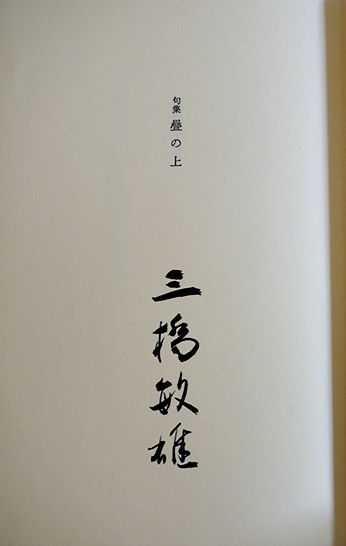 句集 畳の上
三橋敏雄